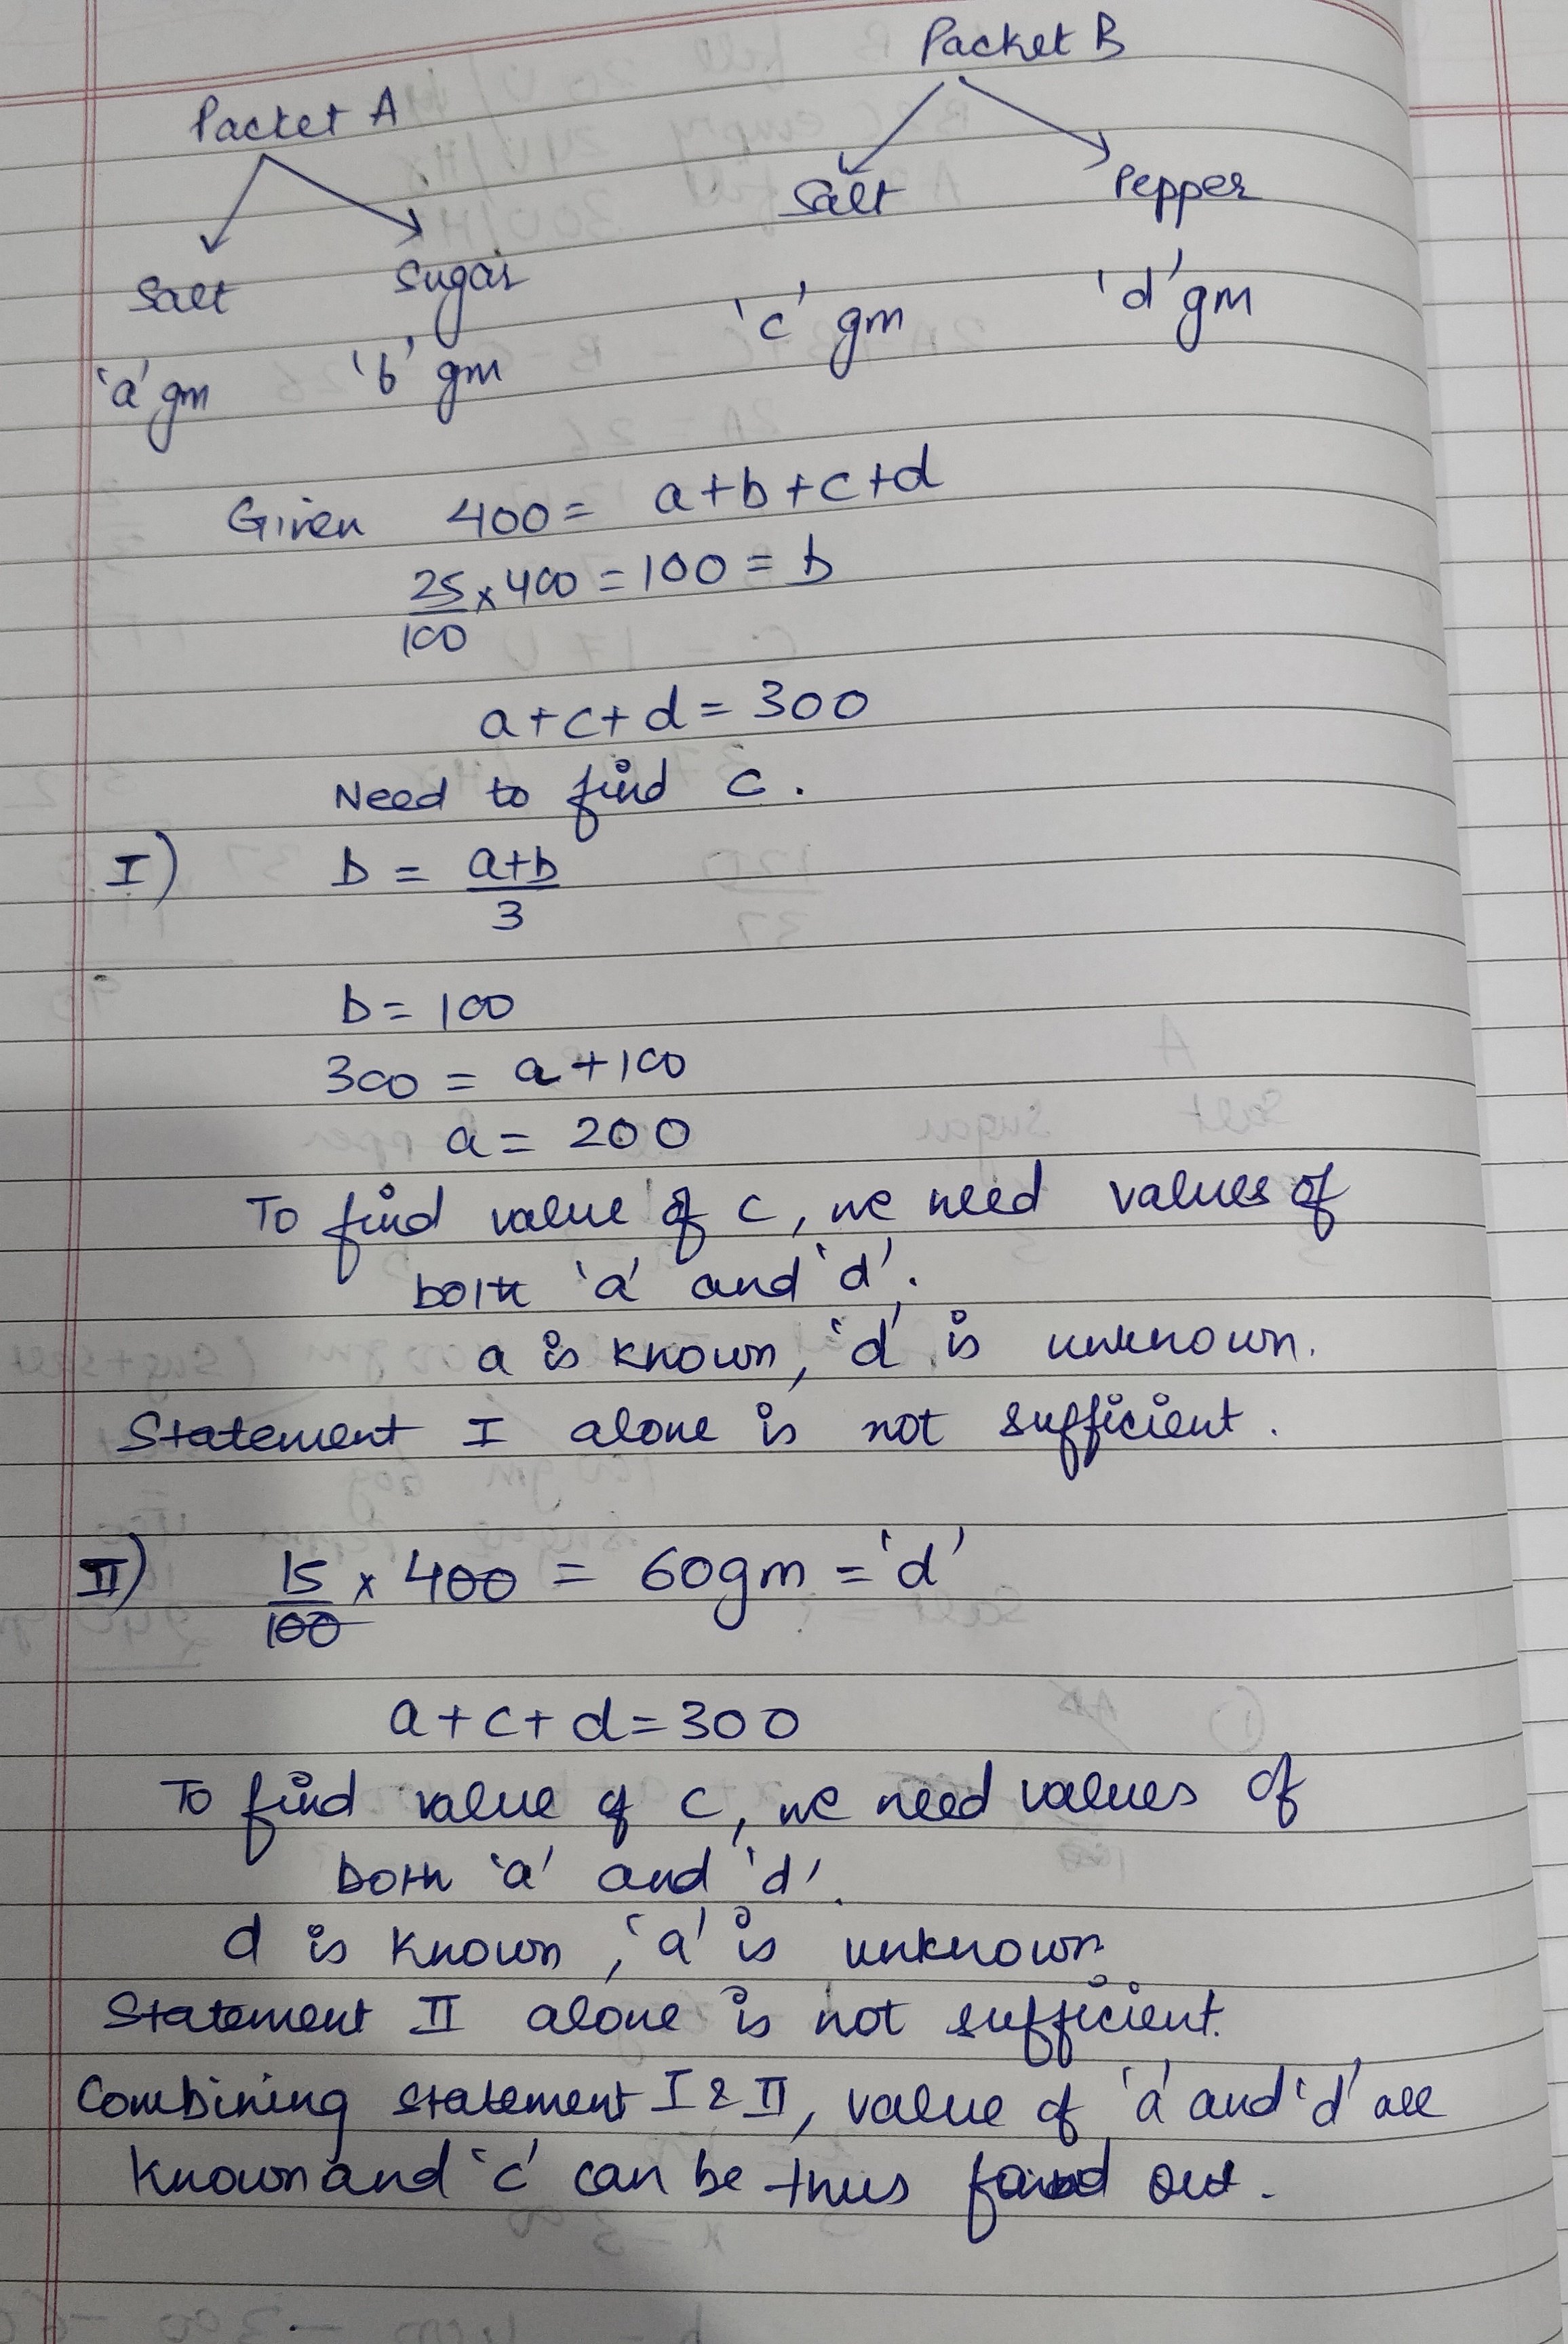 Packet B
Packet A
Salt Pepper
Salt Sugar
'c' gm 'd' gm
'a' gm 'b' gm
Given 400 = a+b+c+d
25/100 × 400 = 100 = b
a+c+d = 300
Need to find c.
I) b = (a+b)/3
b = 100
300 = a+100
a = 200
To find value of c, we need values of
both 'a' and 'd'.
a is known, 'd' is unknown.
Statement I alone is not sufficient.
II) 15/100 × 400 = 60gm = 'd'
a+c+d = 300
To find value of c, we need values of
both 'a' and 'd'.
d is known, 'a' is unknown
Statement II alone is not sufficient.
Combining statement I & II, value of 'a' and 'd' are
known and 'c' can be thus found out.